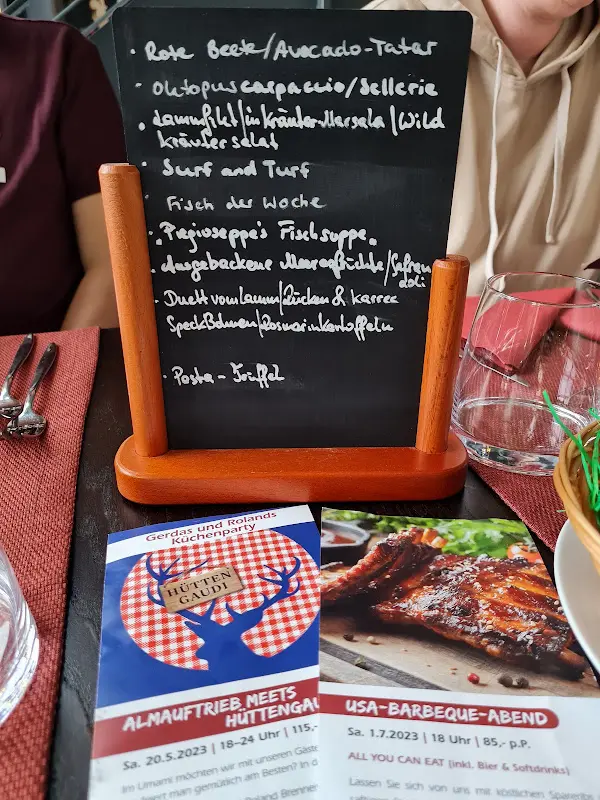 · Rote Beete/Avocado-Tatar
· Oktopuscarpaccio/Sellerie
· Lammfilet/in Kräuter-Marsala/Wild
kräutersalat
· Surf and Turf
· Fisch der Woche
· "Pregioseppe's Fischsuppe"
· Ausgebackene Meeresfrüchte/Safran
aoli
· Duett vom Lamm/Rücken & Karree
Speckbohnen/Rosmarinkartoffeln
· Pasta - Trüffel
Gerdas und Rolands
Küchenparty
HÜTTEN
GAUDI
ALMAUFTRIEB MEETS
HÜTTENGAU
Sa. 20.5.2023 | 18–24 Uhr | 115,-
Im Umami möchten wir mit unseren Gäste
man gemütlich am Besten? In d
Roland Brenner
USA-BARBEQUE-ABEND
Sa. 1.7.2023 | 18 Uhr | 85,- p.P.
ALL YOU CAN EAT (inkl. Bier & Softdrinks)
Lassen Sie sich von uns mit köstlichen Spareribs